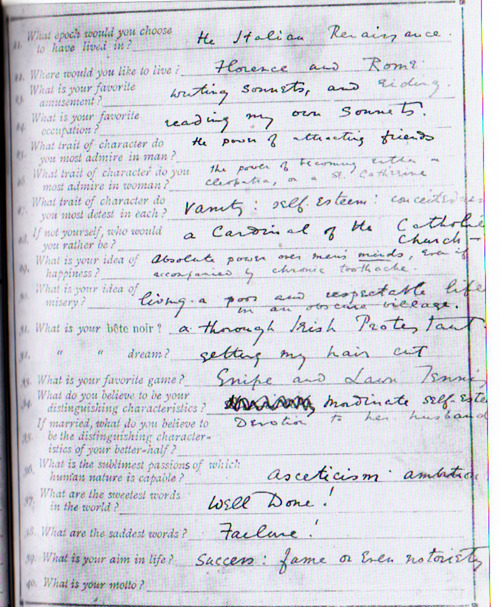 21. What epoch would you choose
to have lived in? the Italian Renaissance.
22. Where would you like to live? Florence and Rome
23. What is your favorite
amusement? writing sonnets, and riding.
24. What is your favorite
occupation? reading my own sonnets.
25. What trait of character do
you most admire in man? the power of attracting friends
26. What trait of character do you
most admire in woman? the power of becoming either a
cleopatra, or a St. Catherine
27. What trait of character do
you most detest in each? Vanity: self-esteem: conceitedness
28. If not yourself, who would
you rather be? a Cardinal of the Catholic
Church –
29. What is your idea of
happiness? absolute power over men's minds, even if
accompanied by chronic toothache.
30. What is your idea of
misery? living a poor and respectable life
in an obscure village.
31. What is your bête noir? a thorough Irish Protestant
32. " " dream? getting my hair cut
33. What is your favorite game? Snipe and Lawn Tennis
34. What do you believe to be your
distinguishing characteristics? inordinate self-esteem
35. If married, what do you believe to
be the distinguishing character-
istics of your better-half? Devotion to her husband
36. What is the sublimest passions of which
human nature is capable? asceticism ambition
37. What are the sweetest words
in the world? Well Done!
38. What are the saddest words? Failure!
39. What is your aim in life? success: fame or even notoriety
40. What is your motto?